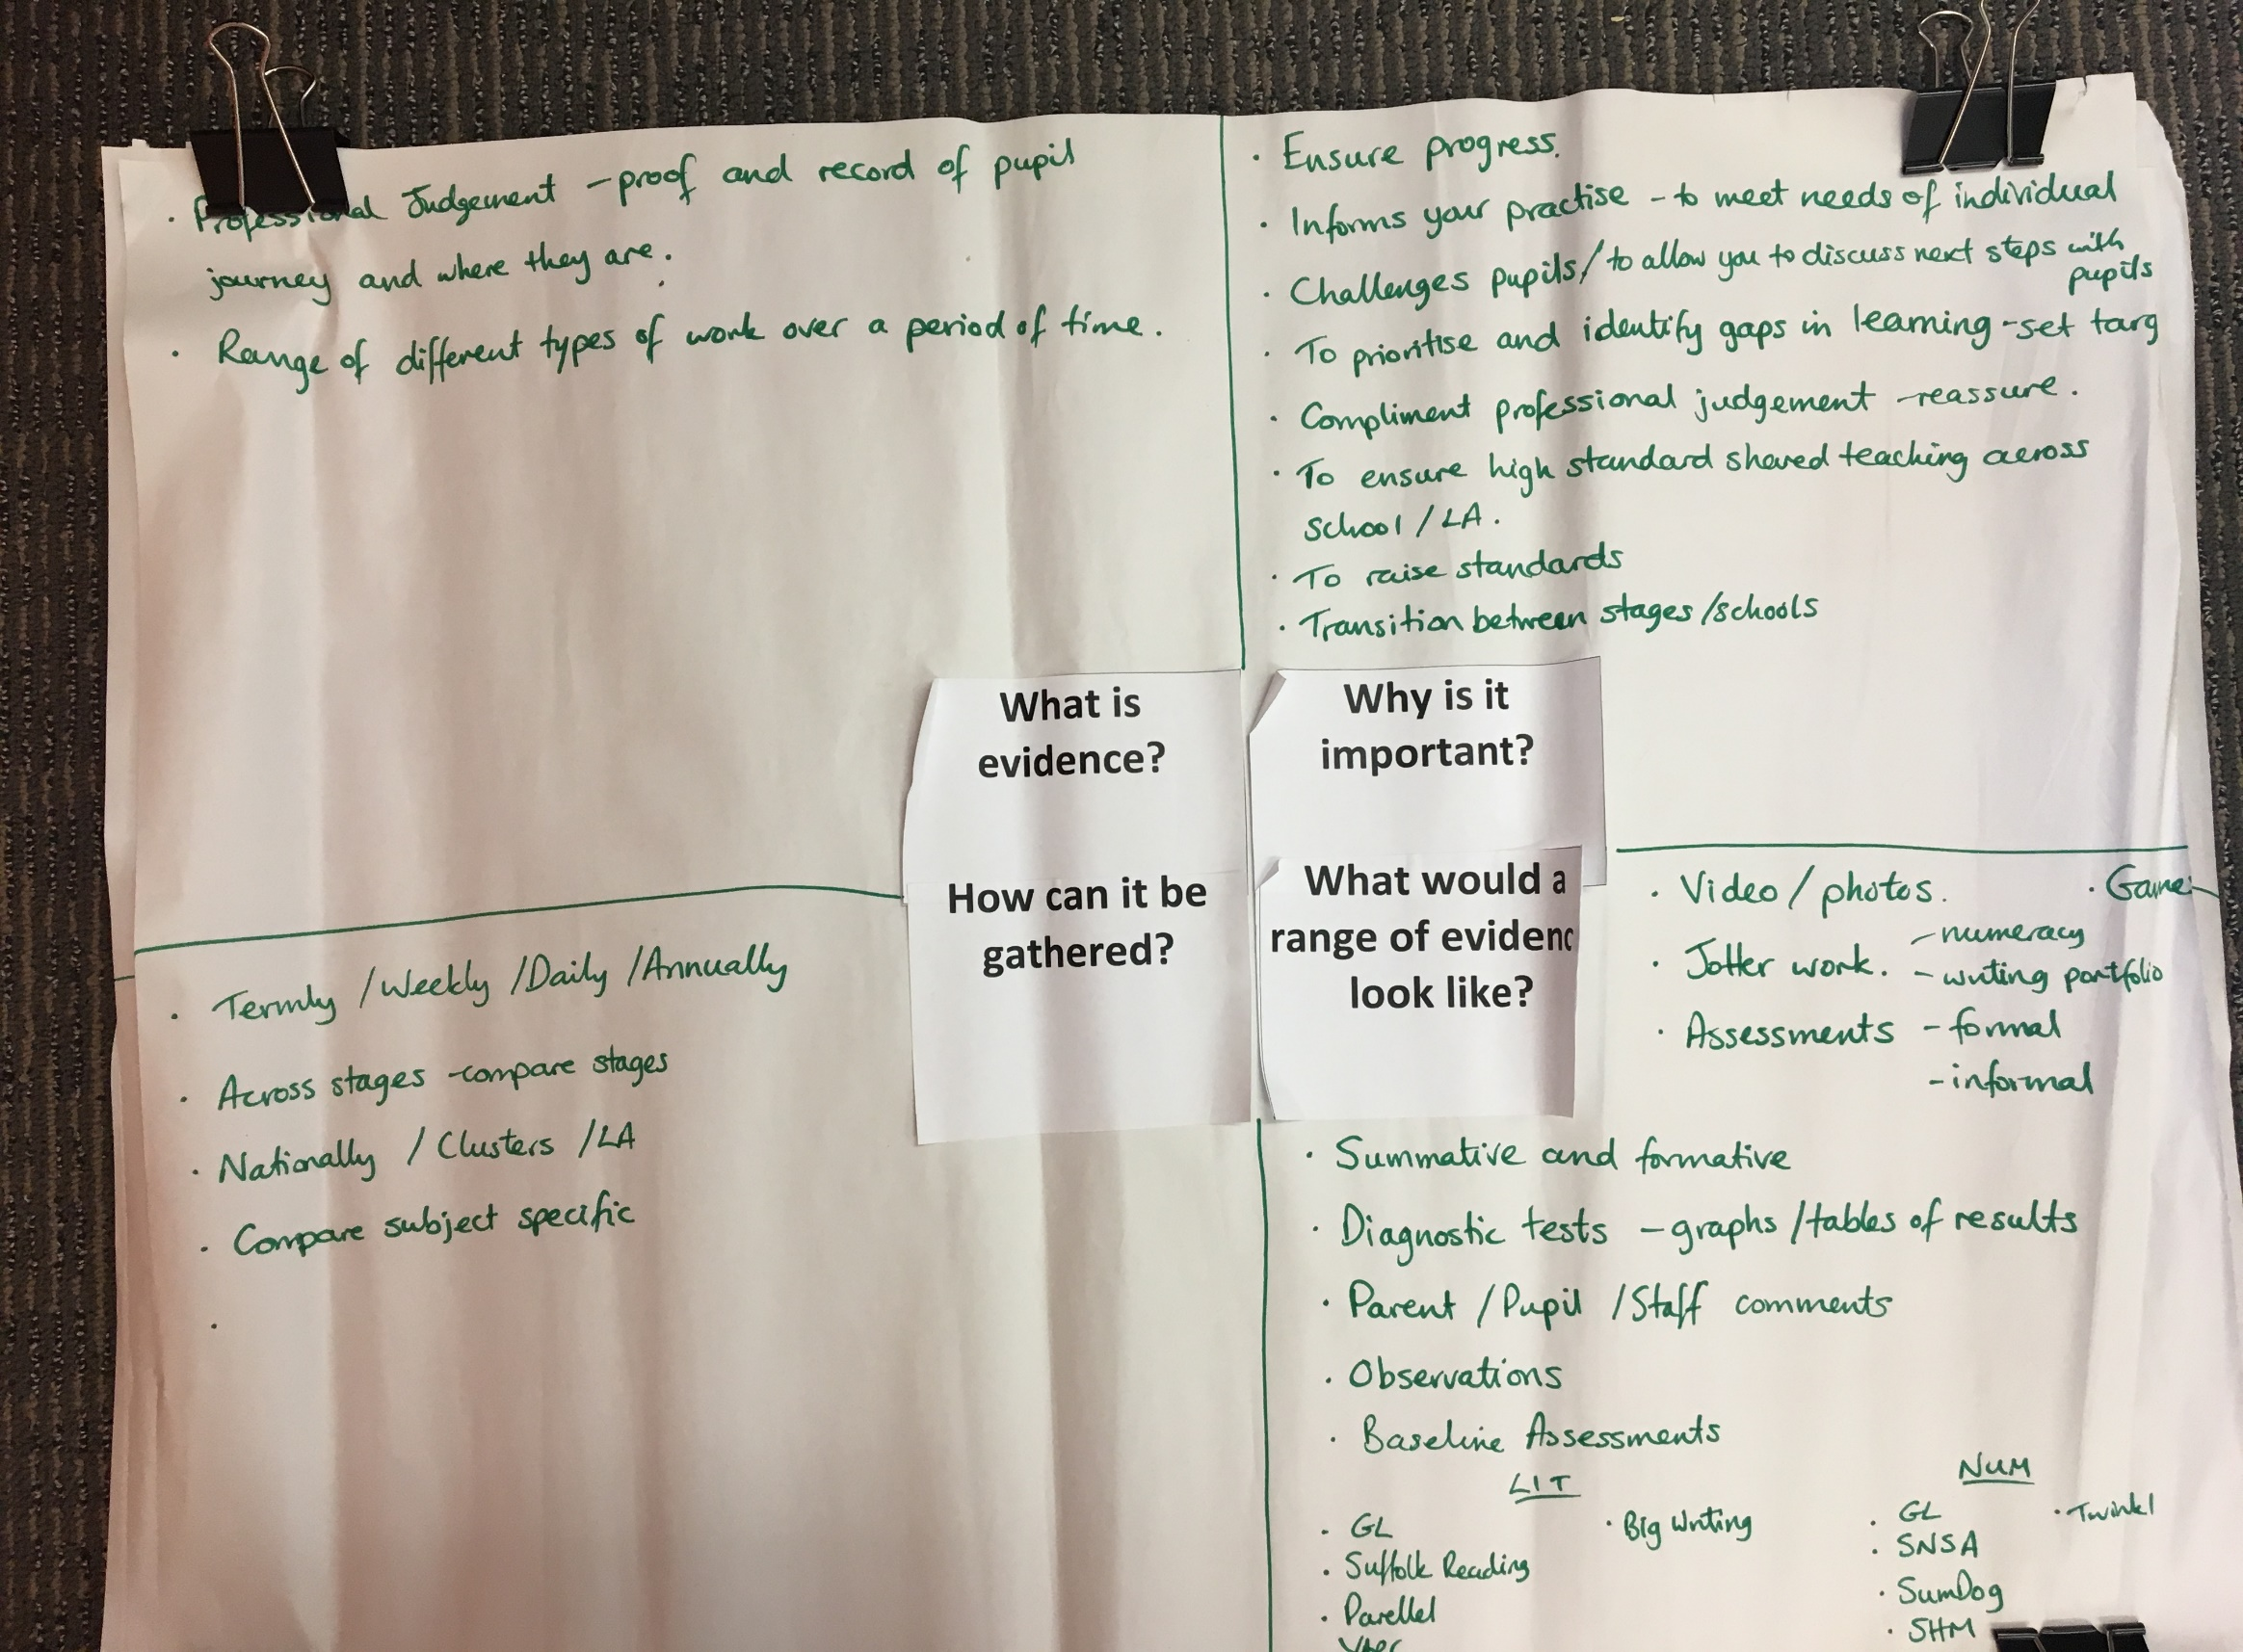 · Professional Judgement - proof and record of pupil
journey and where they are.
· Range of different types of work over a period of time.
· Ensure progress.
· Informs your practise - to meet needs of individual
· Challenges pupils / to allow you to discuss next steps with
pupils
· To prioritise and identify gaps in learning - set targ
· Compliment professional judgement - reassure.
· To ensure high standard shared teaching across
school / LA.
· To raise standards
· Transition between stages / schools
What is
evidence?
Why is it
important?
How can it be
gathered?
What would a
range of evidenc
look like?
· Termly / Weekly / Daily / Annually
· Across stages - compare stages
· Nationally / Clusters / LA
· Compare subject specific
·
· Video / photos. · Game
· Jotter work. - numeracy
- writing portfolio
· Assessments - formal
- informal
· Summative and formative
· Diagnostic tests - graphs / tables of results
· Parent / Pupil / Staff comments
· Observations
· Baseline Assessments
LIT
· GL · Big Writing
· Suffolk Reading
· Parellel
NUM
· GL · Twinkl
· SNSA
· SumDog
· SHM